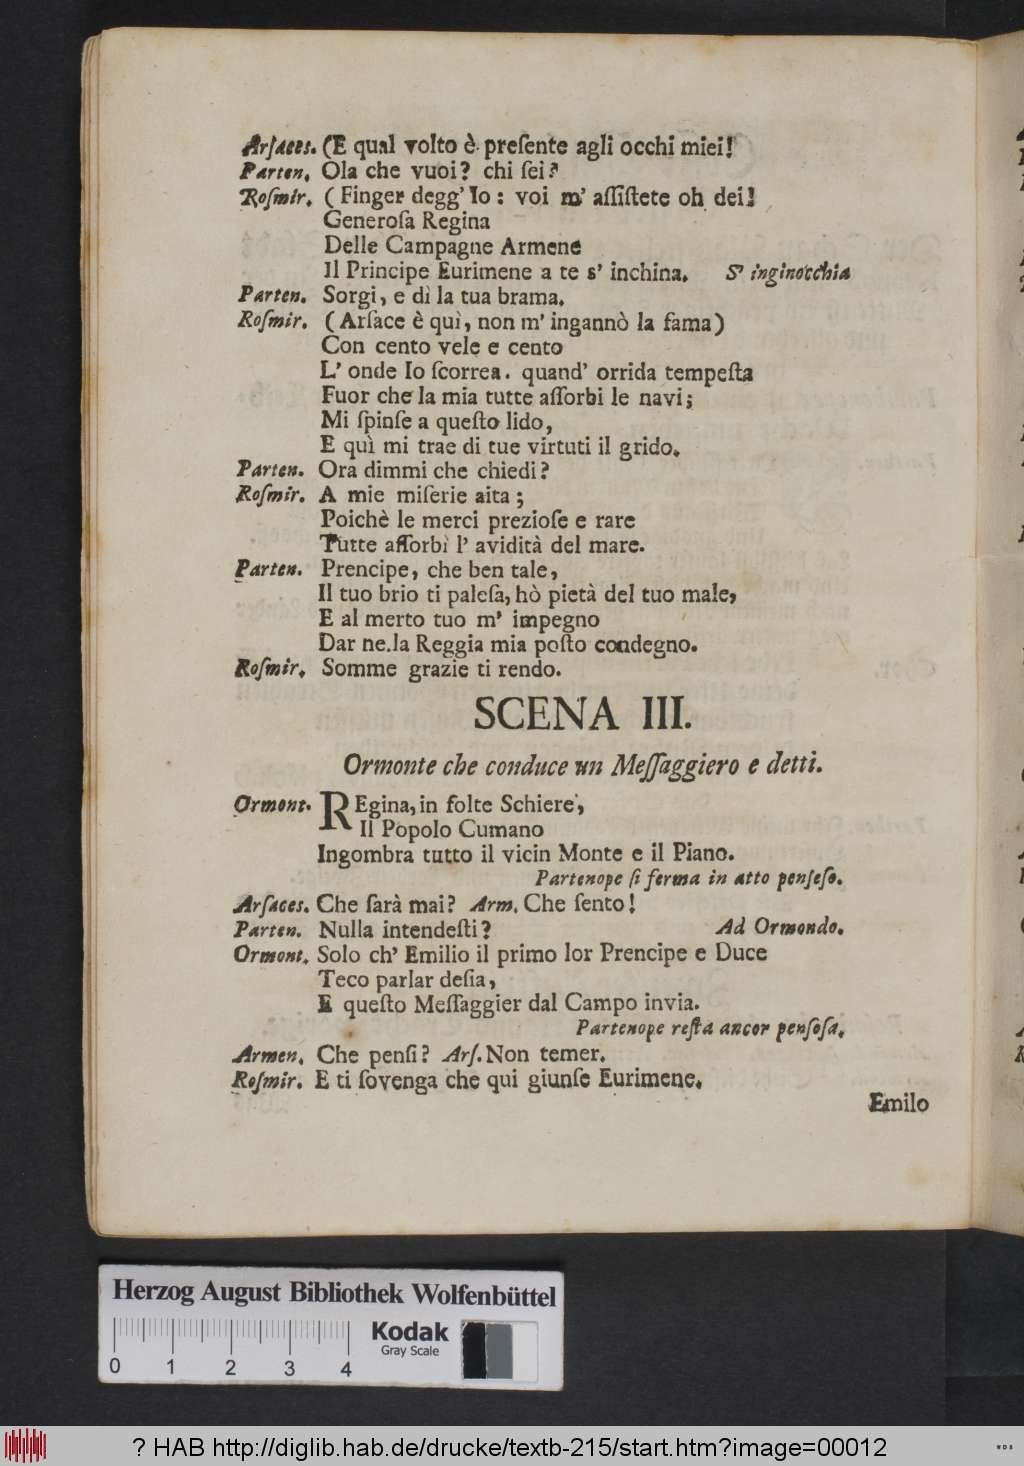 Arſaces. (E qual volto è preſente agli occhi miei!
Parten. Ola che vuoi? chi ſei?
Roſmir. (Finger degg' Io: voi m' aſſiſtete oh dei!
Generoſa Regina
Delle Campagne Armene
Il Principe Eurimene a te s' inchina. S' inginocchia
Parten. Sorgi, e dì la tua brama.
Roſmir. (Arſace è quì, non m' ingannò la fama)
Con cento vele e cento
L' onde Io ſcorrea. quand' orrida tempeſta
Fuor che la mia tutte aſſorbi le navi;
Mi ſpinſe a queſto lido,
E quì mi trae di tue virtuti il grido.
Parten. Ora dimmi che chiedi?
Roſmir. A mie miſerie aita;
Poichè le merci prezioſe e rare
Tutte aſſorbì l' avidità del mare.
Parten. Prencipe, che ben tale,
Il tuo brio ti paleſa, hò pietà del tuo male,
E al merto tuo m' impegno
Dar ne.la Reggia mia poſto condegno.
Roſmir. Somme grazie ti rendo.
SCENA III.
Ormonte che conduce un Meſſaggiero e detti.
Ormont. REgina, in folte Schiere,
Il Popolo Cumano
Ingombra tutto il vicin Monte e il Piano.
Partenope ſi ferma in atto penſeſo.
Arſaces. Che ſarà mai? Arm. Che ſento!
Parten. Nulla intendeſti? Ad Ormondo.
Ormont. Solo ch' Emilio il primo lor Prencipe e Duce
Teco parlar deſia,
E queſto Meſſaggier dal Campo invia.
Partenope reſta ancor penſoſa.
Armen. Che penſi? Arſ. Non temer.
Roſmir. E ti ſovenga che qui giunſe Eurimene.
Emilo
Herzog August Bibliothek Wolfenbüttel
Kodak
Gray Scale
0 1 2 3 4
? HAB http://diglib.hab.de/drucke/textb-215/start.htm?image=00012